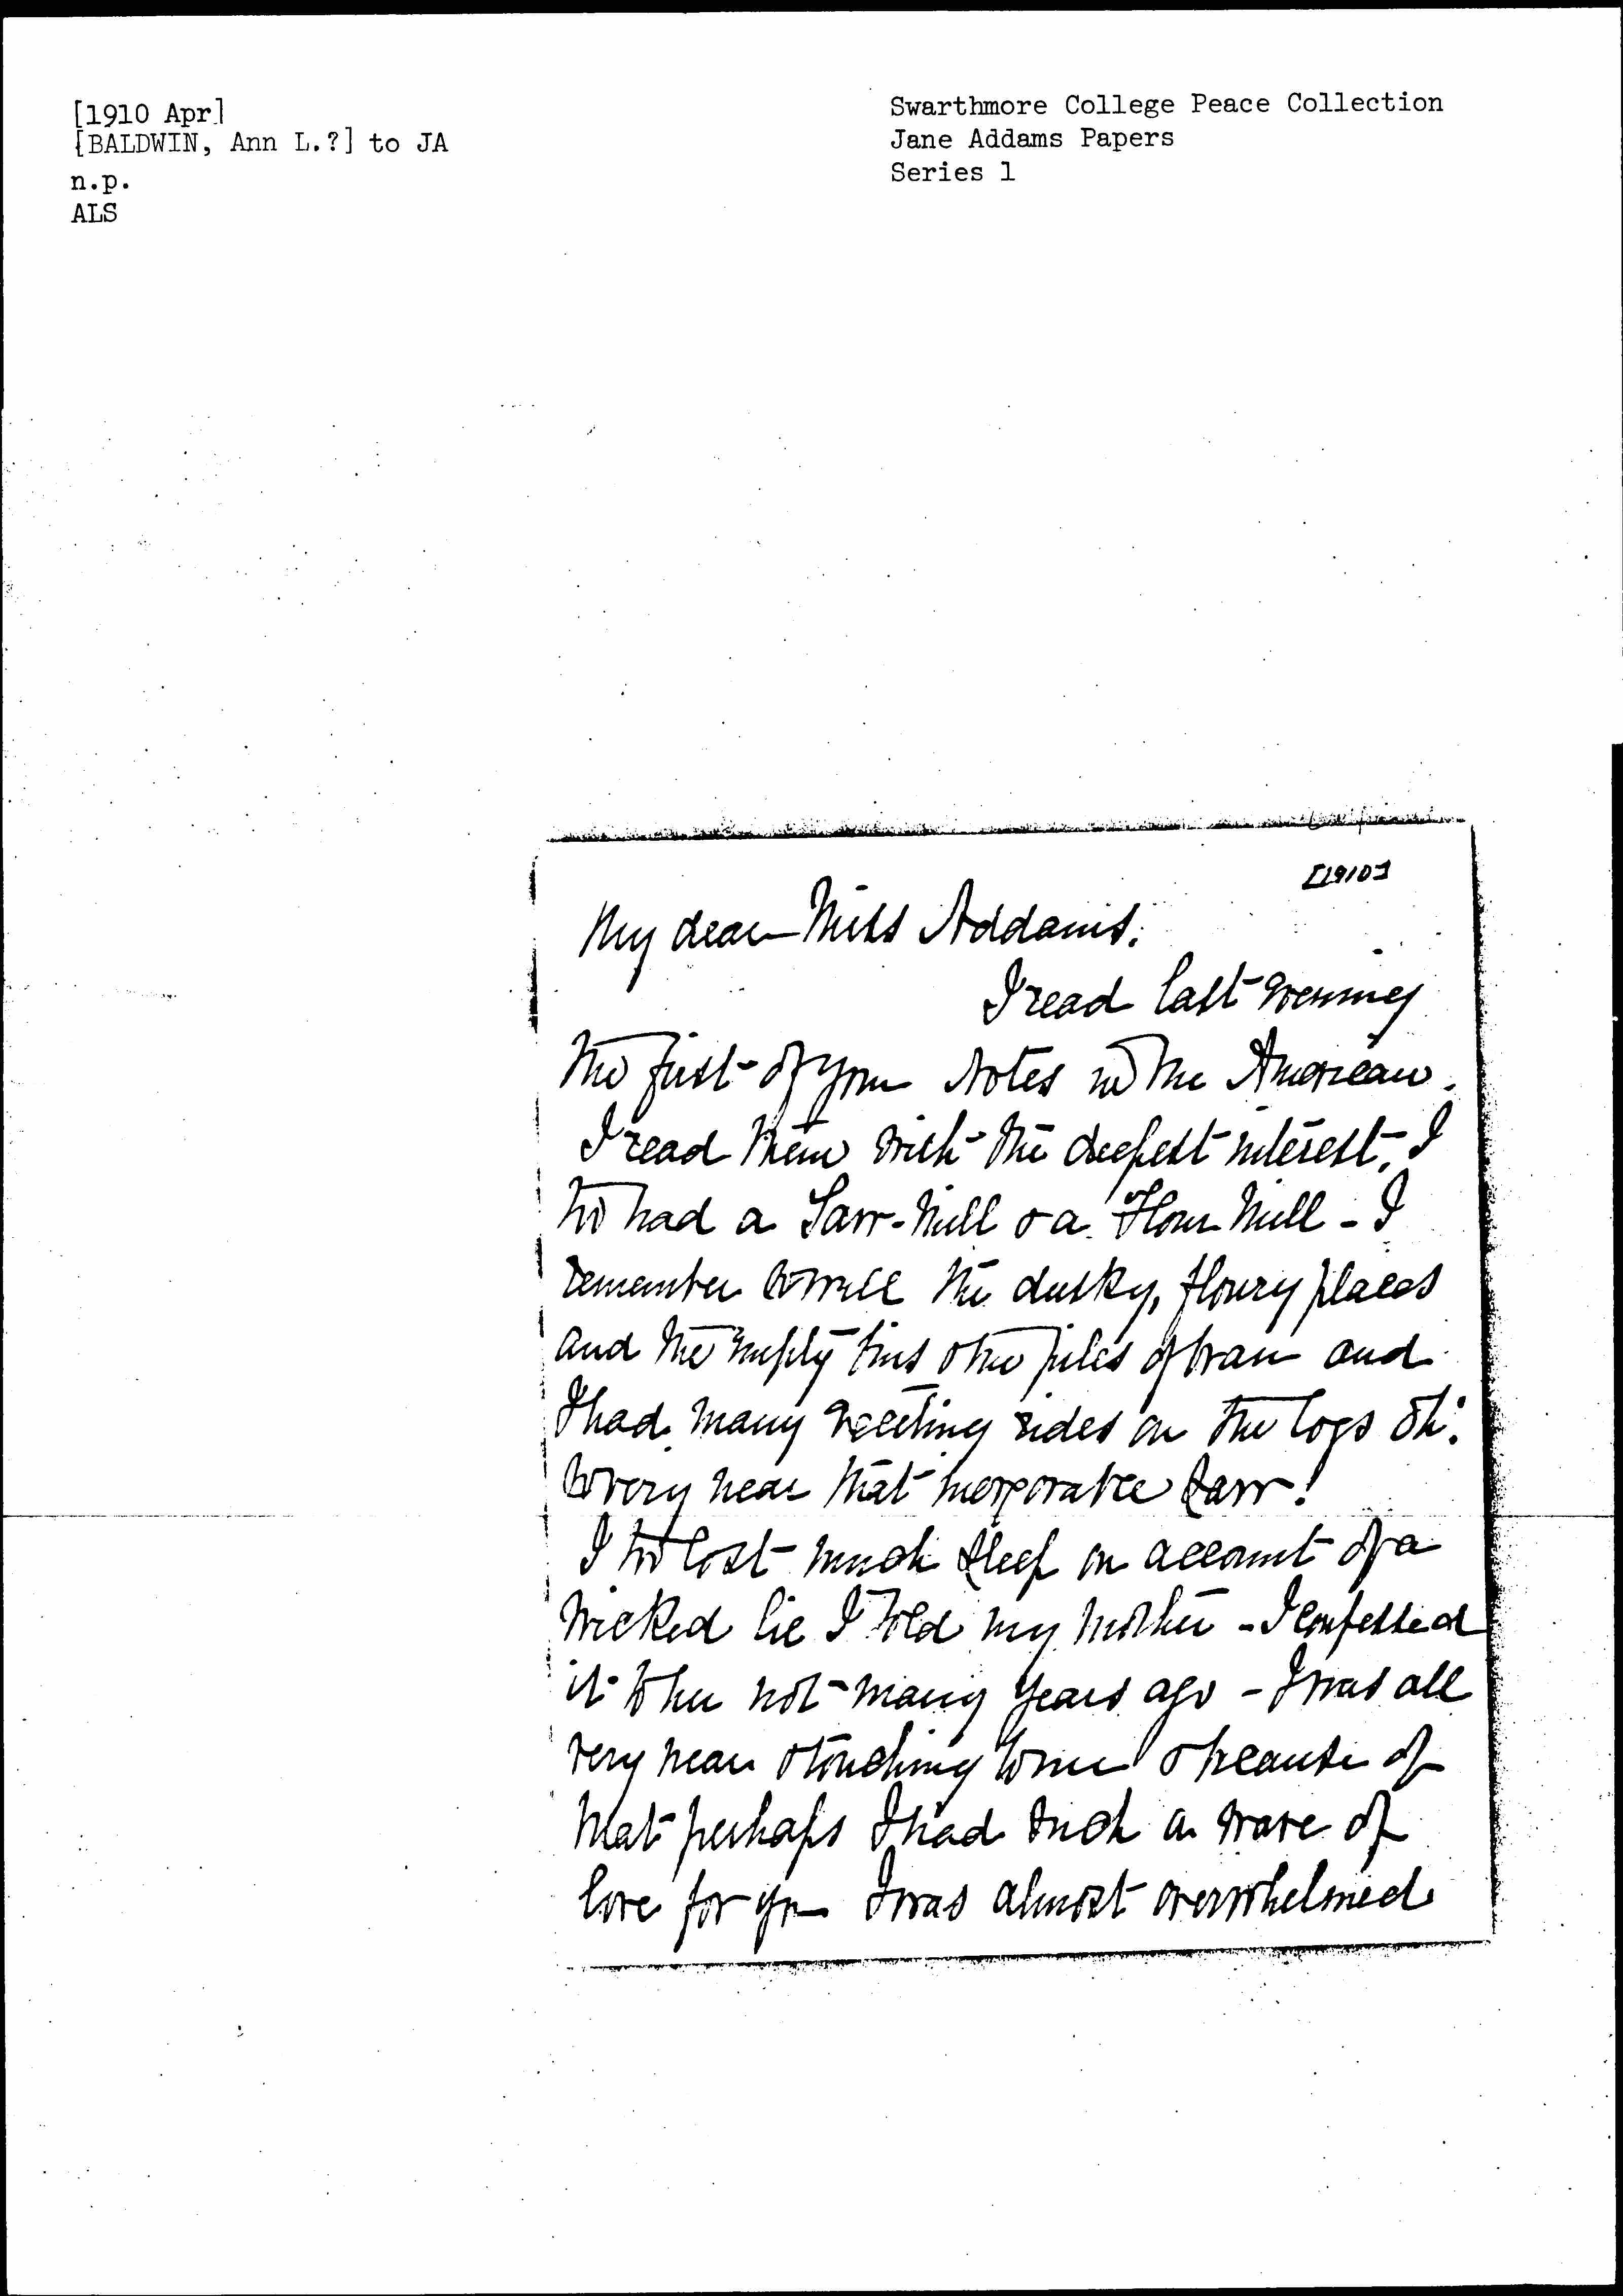 [1910 Apr]
[BALDWIN, Ann L.?] to JA
n.p.
ALS
Swarthmore College Peace Collection
Jane Addams Papers
Series 1
[1910]
My dear Miss Addams.
I read last evening
the first of your Notes in the American.
I read them with the deepest interest. I
too had a Saw-Mill & a Flour Mill - I
remember so well the dusky, floury places
and the empty bins & the piles of bran and
I had many exciting rides on the logs oh!
so very near that inexorable saw!
I too lost much sleep on account of a
wicked lie I told my mother - I confessed
it to her not many years ago - It was all
very near & touching to me & because of
that perhaps I had such a wave of
love for you I was almost overwhelmed